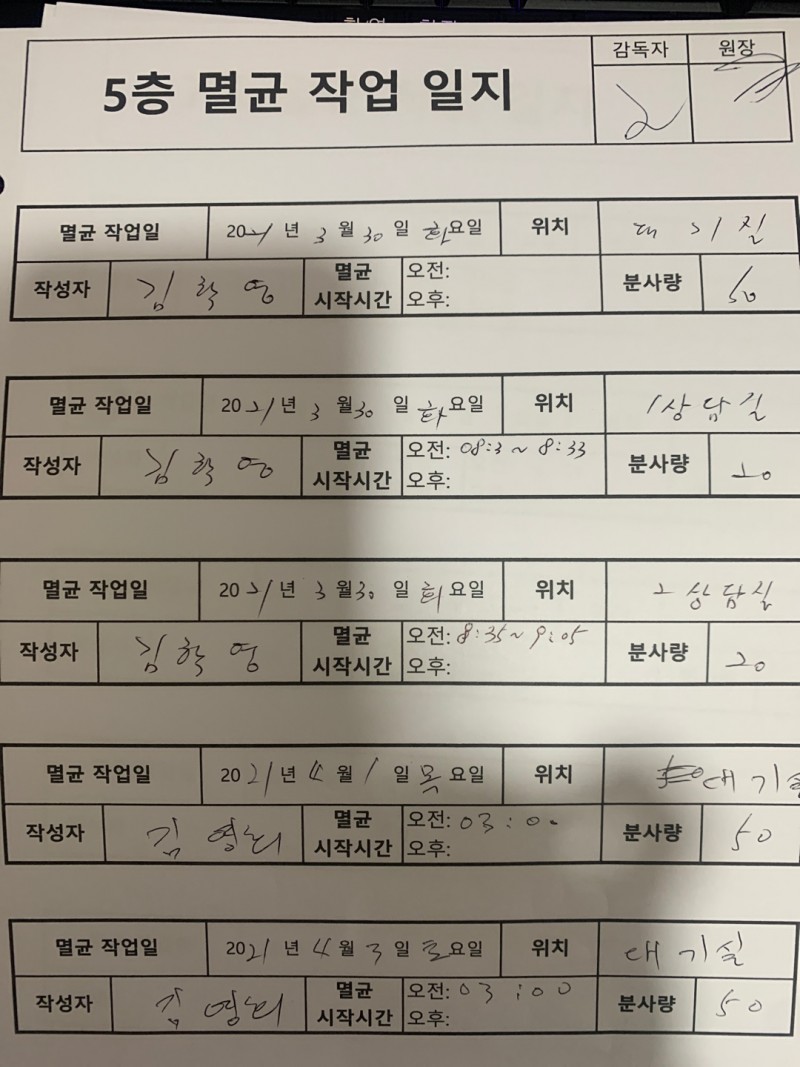 감독자 원장
5층 멸균 작업 일지
멸균 작업일 2021년 3월 30일 화요일 위치 대기실
작성자 김학영 멸균 시작시간 오전: 분사량 50
오후:
멸균 작업일 2021년 3월 30일 화요일 위치 1상담실
작성자 김학영 멸균 시작시간 오전: 08:3 ~ 8:33 분사량 20
오후:
멸균 작업일 2021년 3월 30일 화요일 위치 2상담실
작성자 김학영 멸균 시작시간 오전: 8:35 ~ 9:05 분사량 20
오후:
멸균 작업일 2021년 4월 1일 목요일 위치 대기실
작성자 김 멸균 시작시간 오전: 03:00 분사량 50
오후:
멸균 작업일 2021년 4월 3일 토요일 위치 대기실
작성자 김 멸균 시작시간 오전: 03:00 분사량 50
오후: